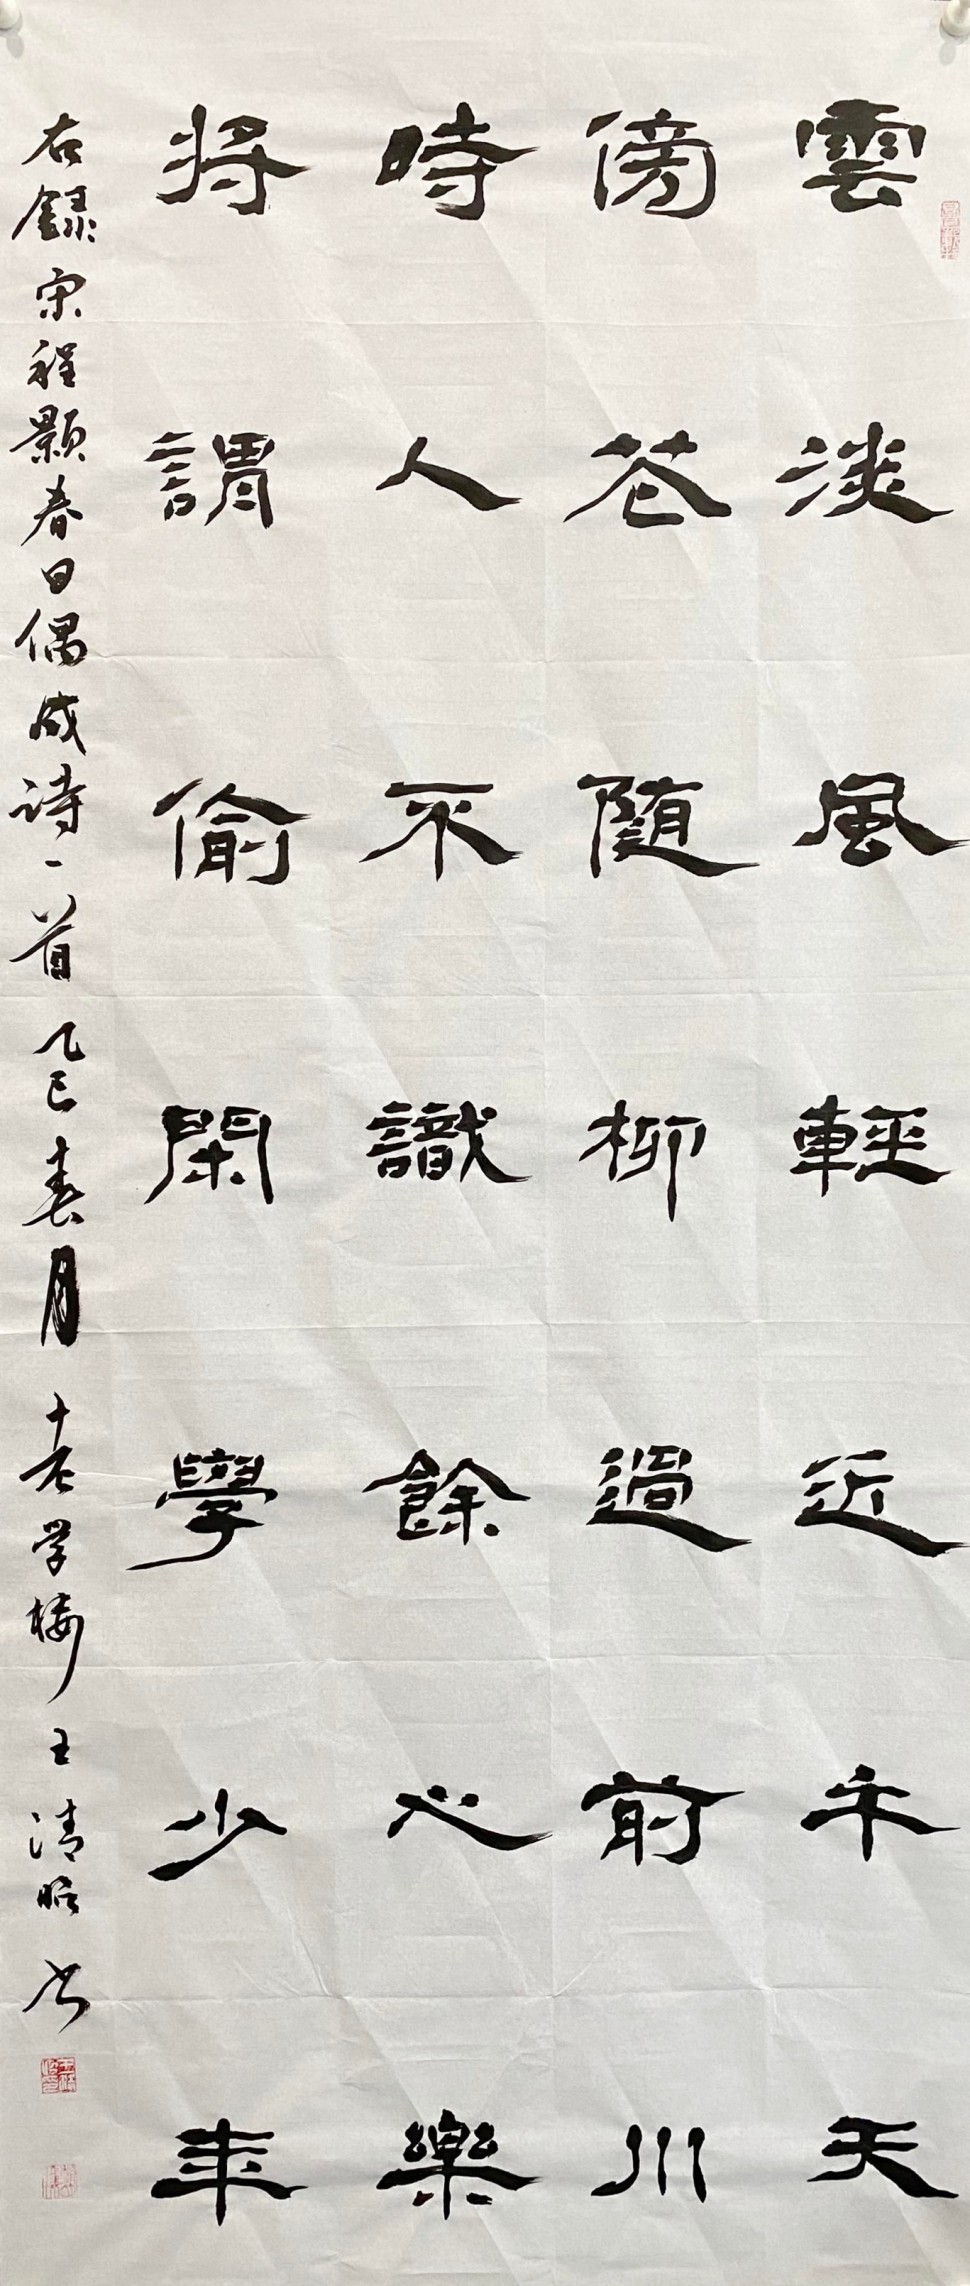 雲淡風輕近午天
傍花随柳過前川
時人不識餘心樂
將謂偷閑學少年
右録宋程颢春日偶成诗一首 乙巳春月 十老学楼 王清昭书